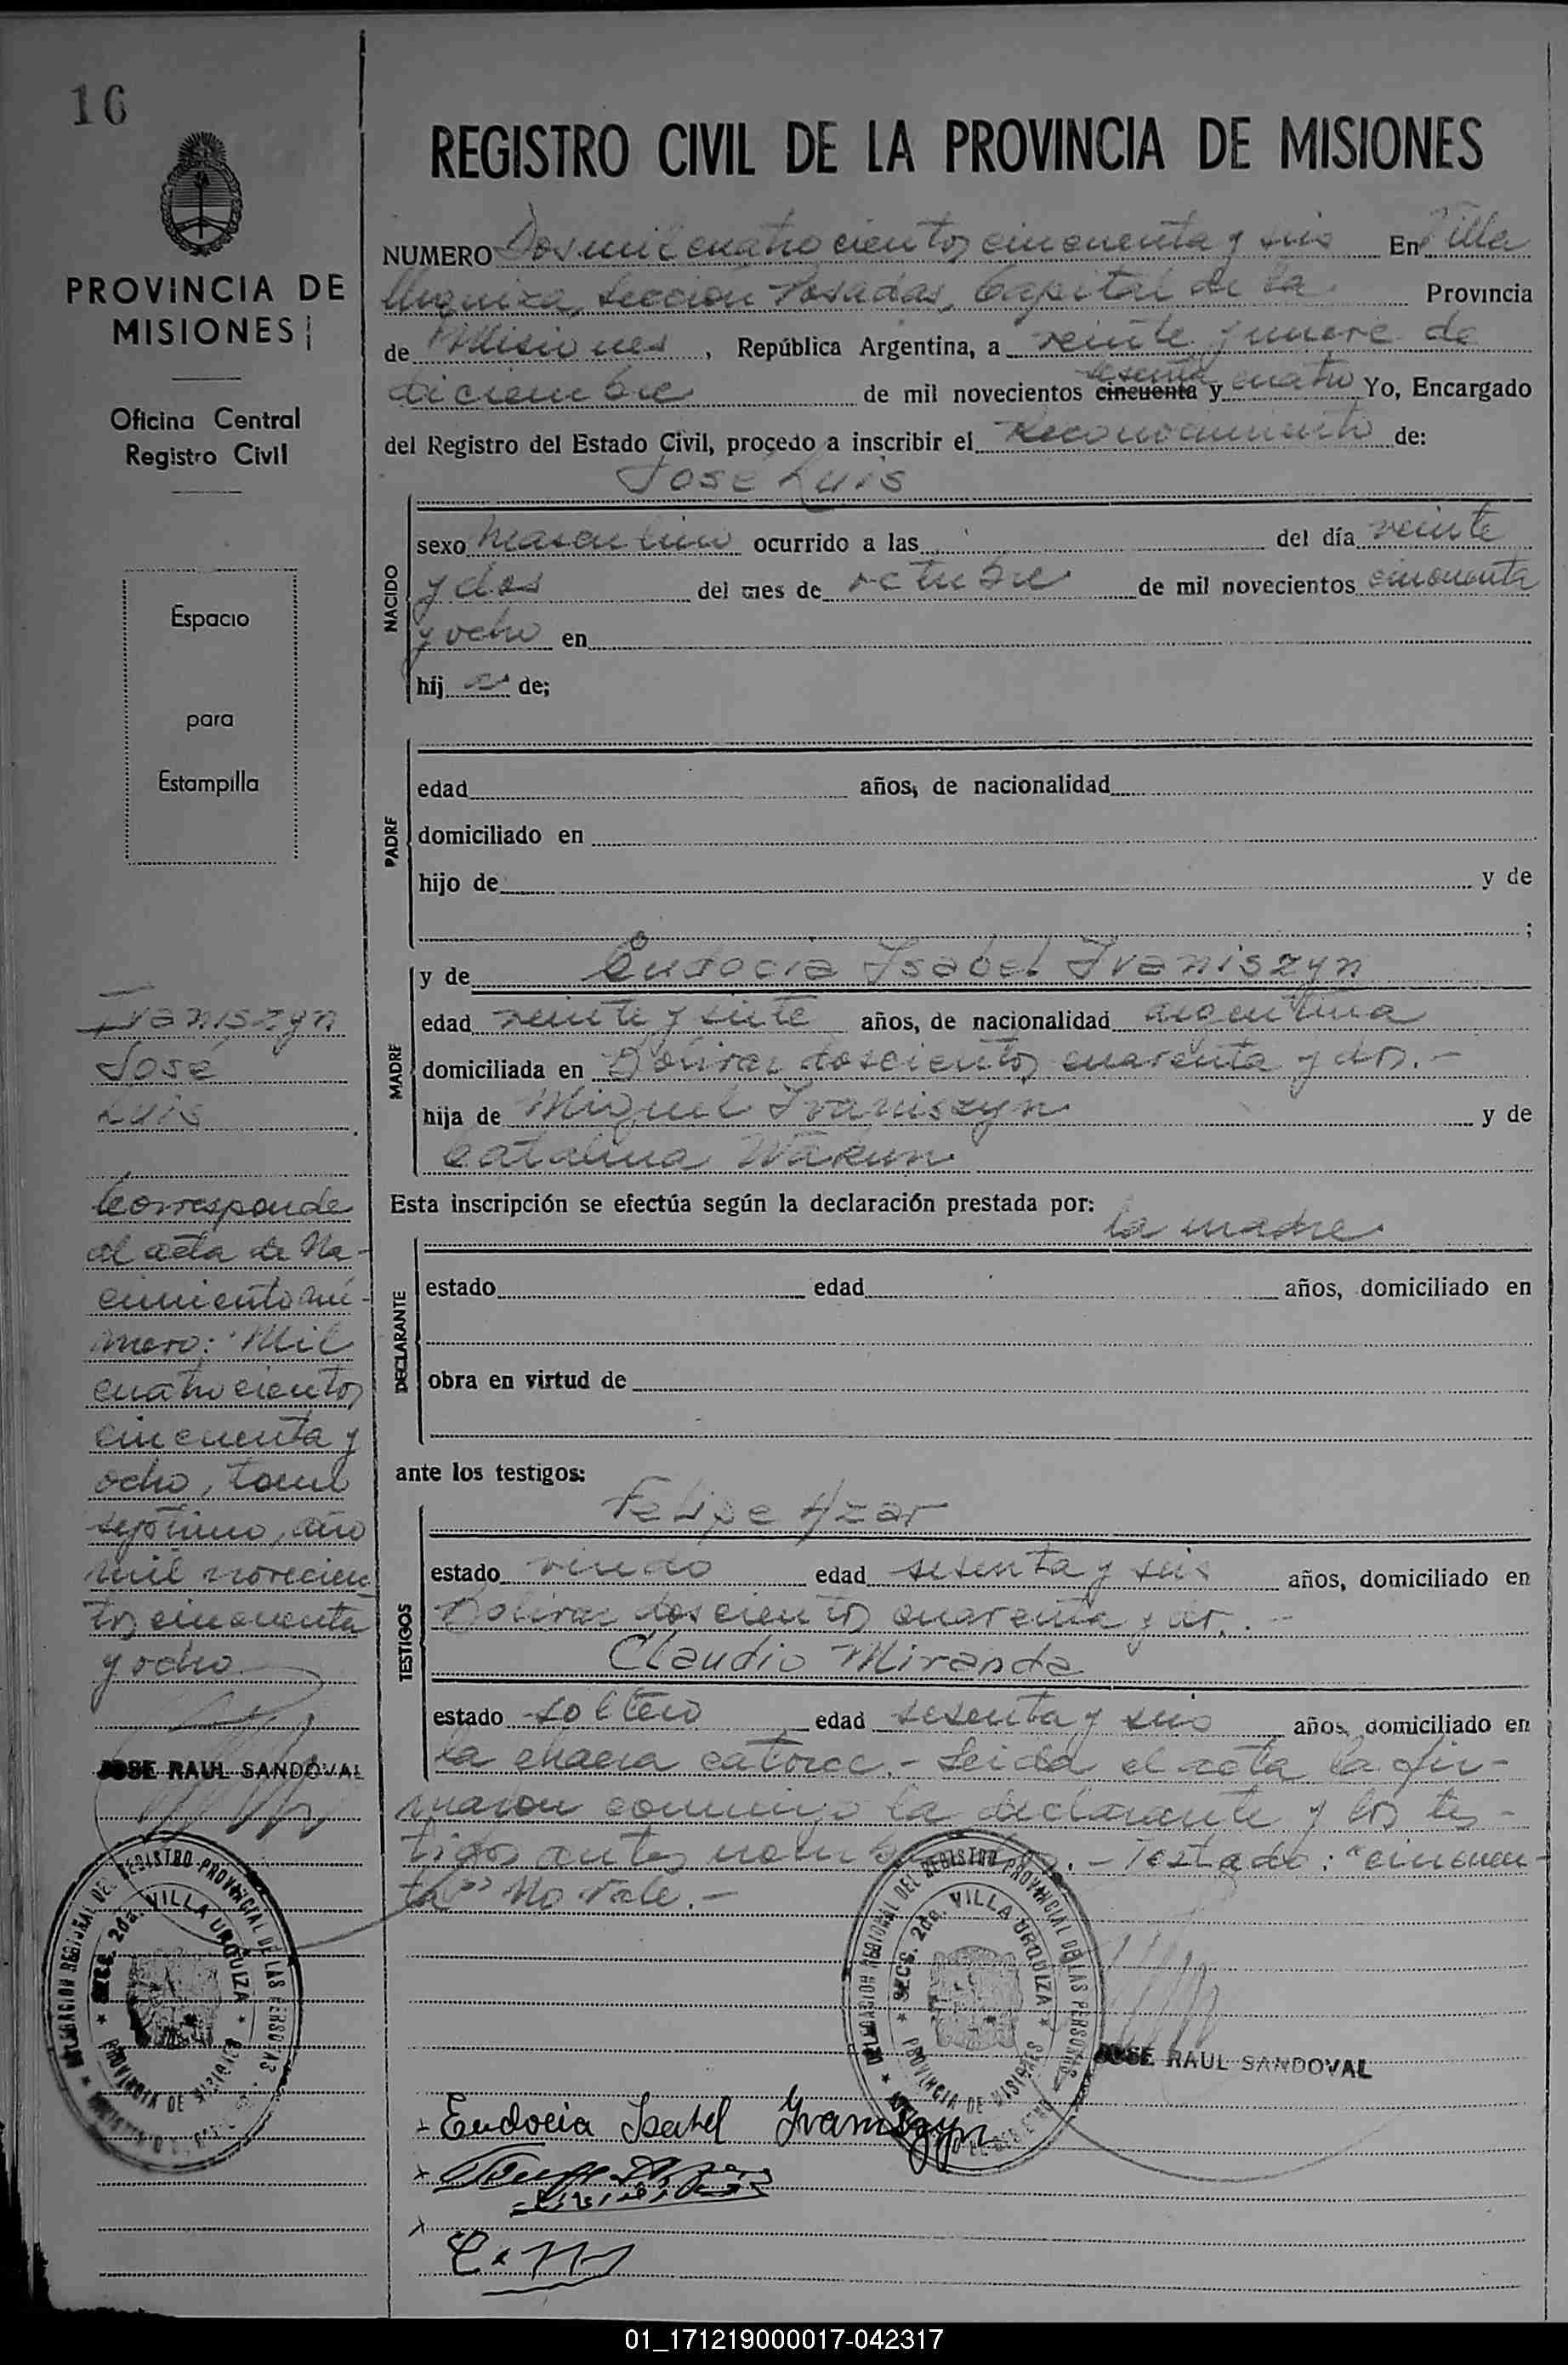 16
PROVINCIA DE
MISIONES
Oficina Central
Registro Civil
Espacio
para
Estampilla
Ivaniszyn
José
Luis
Corresponde
al acta de Na-
cimiento nú-
mero: Mil
cuatrocientos
cincuenta y
ocho, tomo
septimo, año
mil novecien
tos cincuenta
y ocho
JOSE RAUL SANDOVAL
REGISTRO CIVIL DE LA PROVINCIA DE MISIONES
NUMERO Dos mil cuatrocientos cincuenta y seis En Villa
Urquiza, Sección Posadas, Capital de la Provincia
de Misiones, República Argentina, a veinte y nueve de
diciembre de mil novecientos cincuenta sesenta y cuatro Yo, Encargado
del Registro del Estado Civil, procedo a inscribir el Reconocimiento de:
José Luis
NACIDO
sexo masculino ocurrido a las del día veinte
y dos del mes de octubre de mil novecientos cincuenta
y ocho en
hij o de;
PADRE
edad años, de nacionalidad
domiciliado en
hijo de y de
;
MADRE
y de Eudocia Isabel Ivaniszyn
edad veinte y siete años, de nacionalidad argentina
domiciliada en Bolivar doscientos cuarenta y dos.-
hija de Miguel Ivaniszyn y de
Catalina Wakun
Esta inscripción se efectúa según la declaración prestada por:
la madre
DECLARANTE
estado edad años, domiciliado en
obra en virtud de
ante los testigos:
TESTIGOS
Felipe Azar
estado viudo edad sesenta y seis años, domiciliado en
Bolivar doscientos cuarenta y dos.-
Claudio Miranda
estado soltero edad sesenta y seis años, domiciliado en
la chacra catorce.- Leida el acta la fir-
maron conmigo la declarante y los tes-
tigos antes nombrados.- Testado: "cincuen-
ta" No vale.-
DELEGACION REGIONAL DEL REGISTRO PROVINCIAL DE LAS PERSONAS
SECS. 2da. VILLA URQUIZA
PROVINCIA DE MISIONES
DELEGACION REGIONAL DEL REGISTRO PROVINCIAL DE LAS PERSONAS
SECS. 2da. VILLA URQUIZA
PROVINCIA DE MISIONES
JOSE RAUL SANDOVAL
Eudocia Isabel Ivaniszyn
01_171219000017-042317